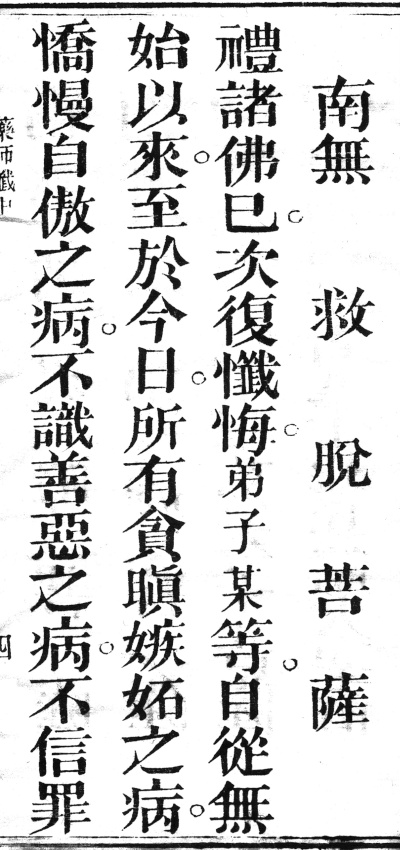 南無救脫菩薩
禮諸佛已。次復懺悔。弟子某等。自從無
始以來。至於今日。所有貪瞋嫉妬之病。
憍慢自傲之病。不識善惡之病。不信罪
藥師懺中
四